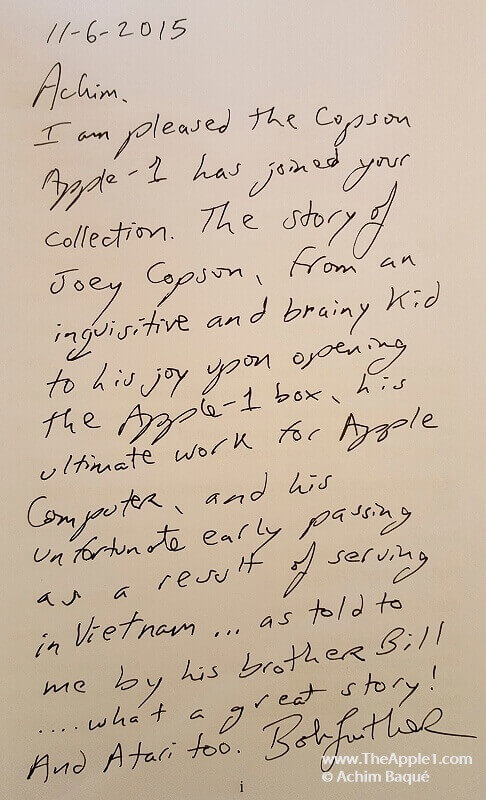 11-6-2015
Achim.
I am pleased the Copson
Apple-1 has joined your
collection. The story of
Joey Copson, from an
inquisitive and brainy kid
to his joy upon opening
the Apple-1 box, his
ultimate work for Apple
Computer, and his
unfortunate early passing
as a result of serving
in Vietnam ... as told to
me by his brother Bill
....what a great story!
And Atari too. Bob Luther
www.TheApple1.com
© Achim Baqué
i